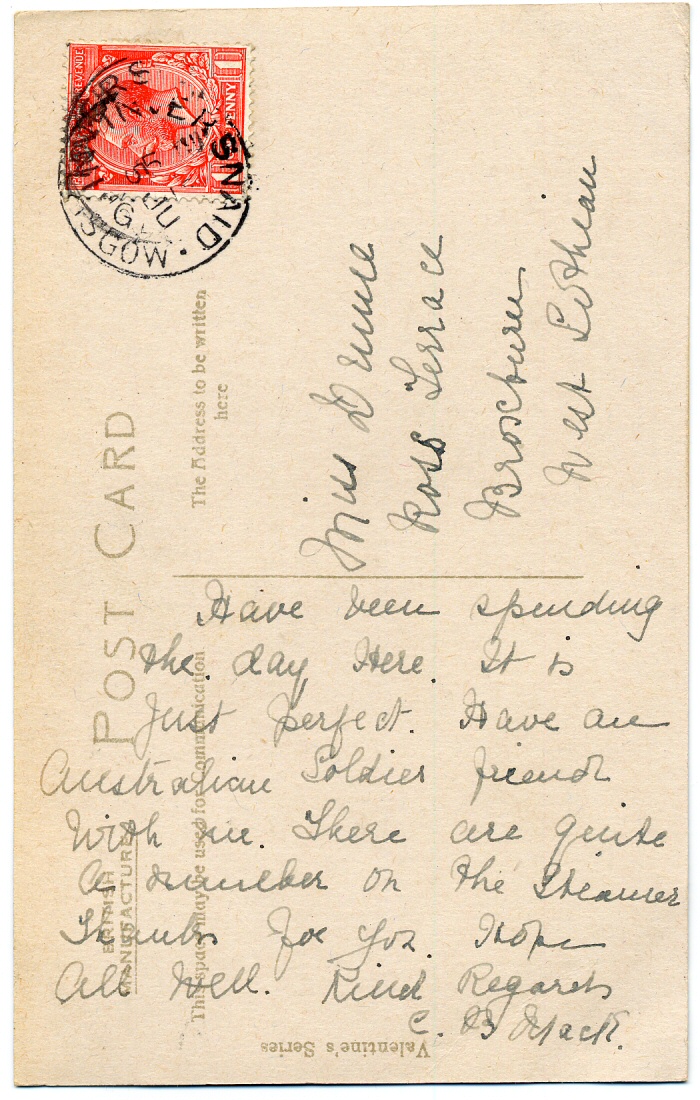 POST CARD
BRITISH
MANUFACTURE
This space may be used for communication
The Address to be written
here
Valentine's Series
REVENUE
PENNY
INVERSNAID
GLASGOW
Miss
Ross Terrace
Broxburn
West Lothian
Have been spending
the day Here. It is
Just perfect. Have an
Australian Soldier friend
With me. There are quite
a number on the Steamer
Thanks for
Hope
All Well. Kind Regards
C. B Mack.